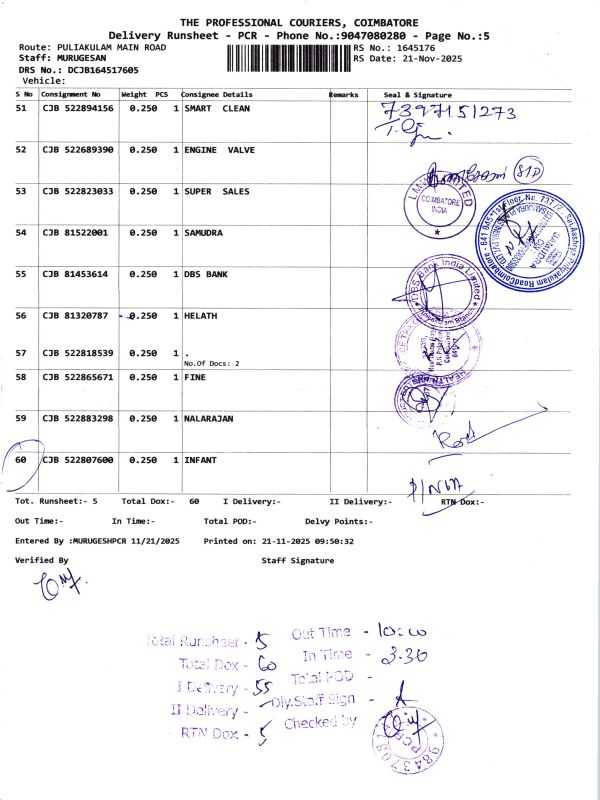 THE PROFESSIONAL COURIERS, COIMBATORE
Delivery Runsheet - PCR - Phone No.:9047080280 - Page No.:5
Route: PULIAKULAM MAIN ROAD RS No.: 1645176
Staff: MURUGESAN RS Date: 21-Nov-2025
DRS No.: DCJB164517605
Vehicle:
S No Consignment No Weight PCS Consignee Details Remarks Seal & Signature
51 CJB 522894156 0.250 1 SMART CLEAN 7397151273
52 CJB 522689390 0.250 1 ENGINE VALVE
53 CJB 522823033 0.250 1 SUPER SALES
COIMBATORE
INDIA
54 CJB 81522001 0.250 1 SAMUDRA
55 CJB 81453614 0.250 1 DBS BANK
DBS Bank India Limited
56 CJB 81320787 0.250 1 HELATH
57 CJB 522818539 0.250 1 .
No.Of Docs: 2
58 CJB 522865671 0.250 1 FINE
59 CJB 522883298 0.250 1 NALARAJAN
60 CJB 522807600 0.250 1 INFANT
Tot. Runsheet:- 5 Total Dox:- 60 I Delivery:- II Delivery:- RTN Dox:-
Out Time:- In Time:- Total POD:- Delvy Points:-
Entered By :MURUGESHPCR 11/21/2025 Printed on: 21-11-2025 09:50:32
Verified By Staff Signature
Total Runsheet - 5 Out Time - 10:00
Total Dox - 60 In Time - 3.30
I Delivery - 55 Total POD -
II Delivery - Dly.Staff Sign -
RTN Dox - 5 Checked by